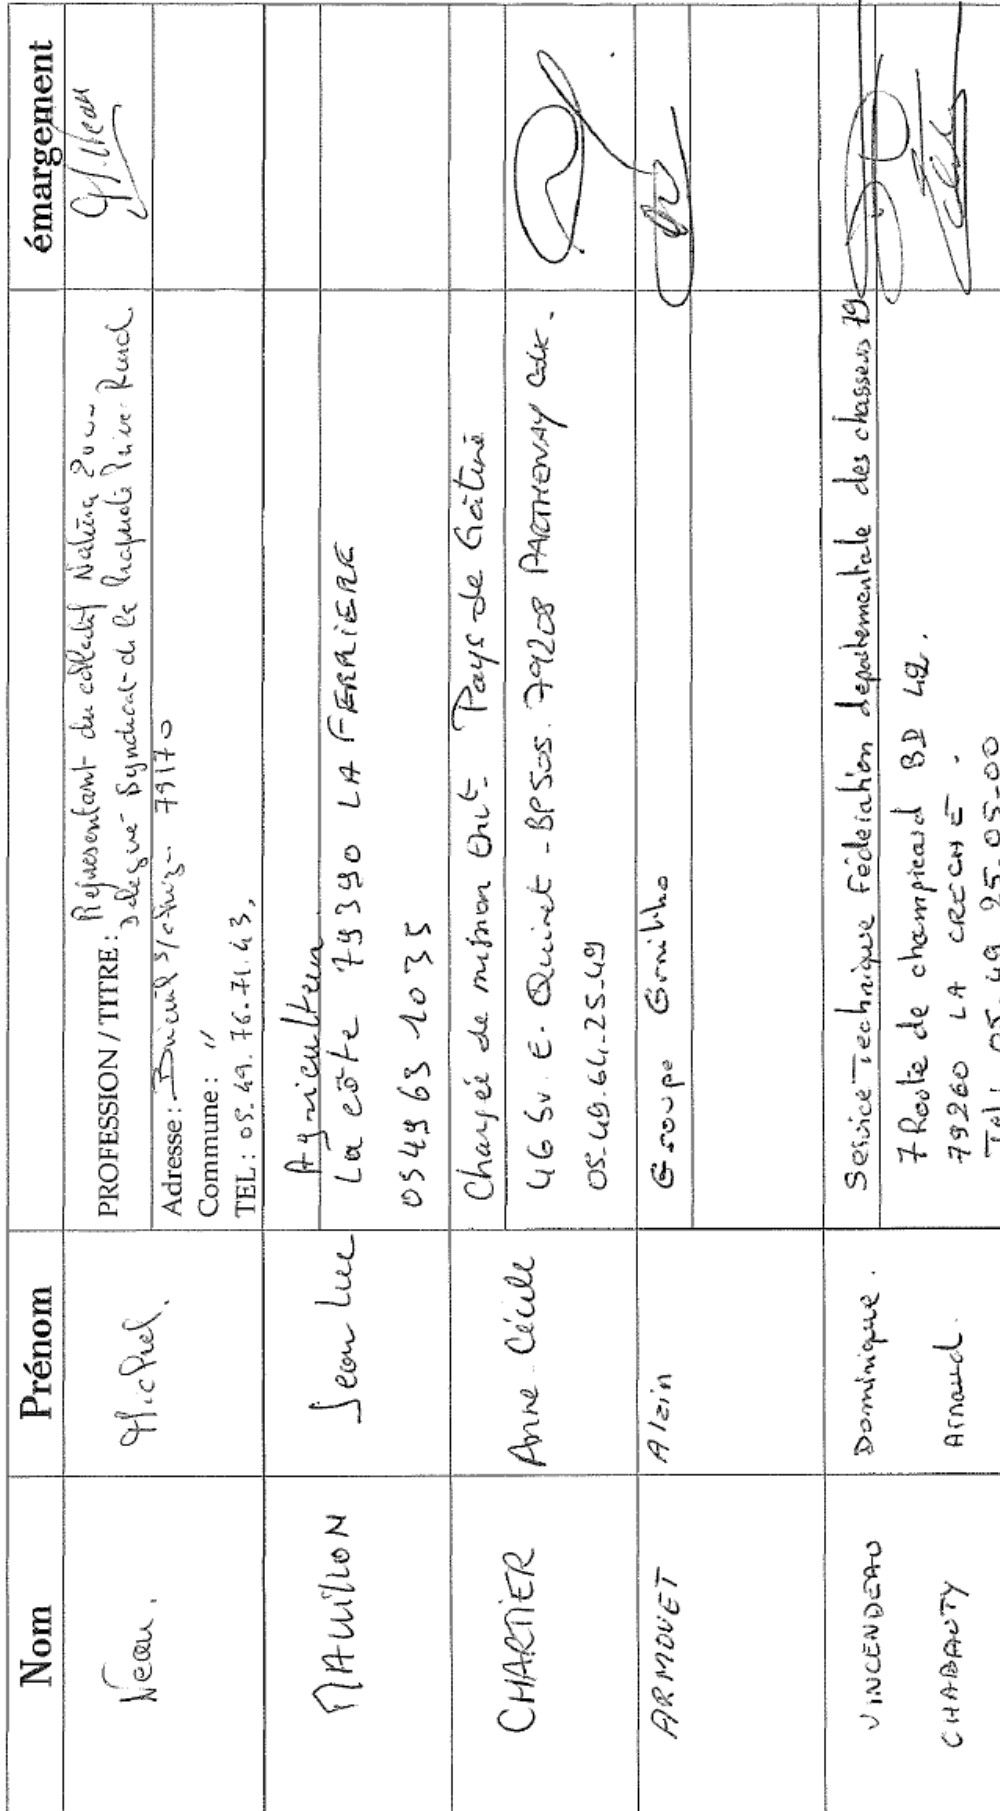 Nom Prénom émargement
Neau. Michel.
PROFESSION / TITRE : Représentant du collectif Natura
Délégué Syndicat de la Propriété Privée Rurale
Adresse : 79170
Commune : "
TEL : 05.49.76.71.43.
MAUILLON Jean Luc
Agriculteur
La côte 79390 LA FERRIERE
0549631035
CHARTIER Anne-Cécile
Chargée de mission Pays de Gâtine
46 Bv. E. Quinet - BP505. 79208 PARTHENAY
05.49.64.25.49
ARMOUET Alain
Groupe
VINCENDEAU Dominique.
Service Technique Fédération départementale des chasseurs 79
CHABAUTY Arnaud.
7 Route de champicard BD 42.
79260 LA CRECHE.
Tel : 05.49.25.05.00